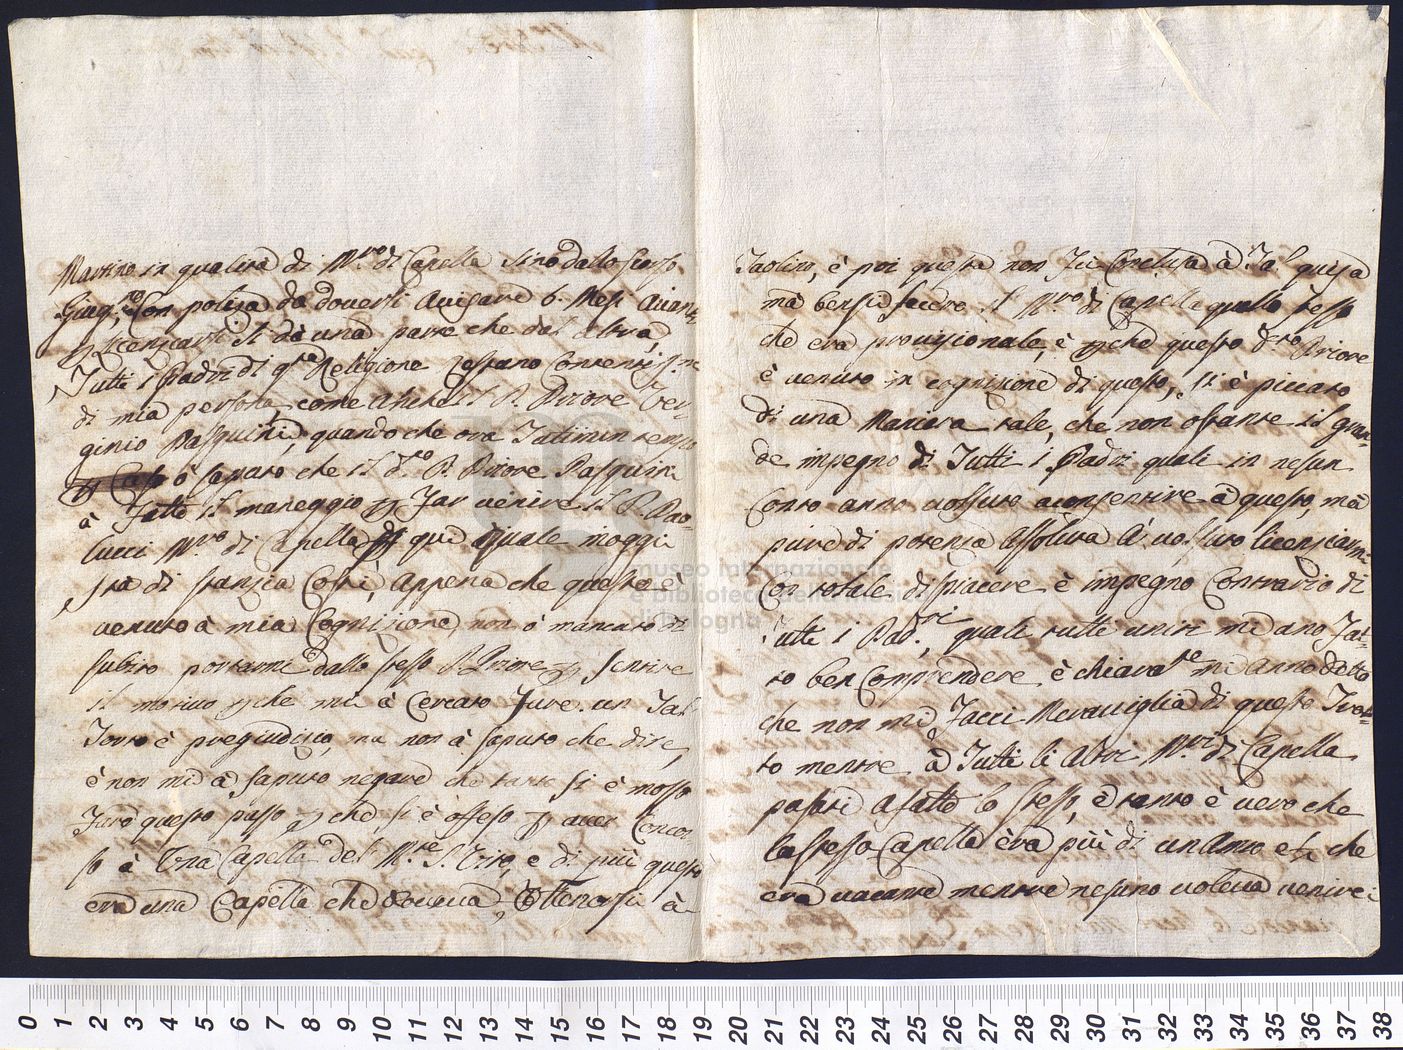 Martino in qualità di M.ro di Capella sino dallo scorso
Giug.no Con poliza da doversi avisare 6. Mesi avanti
p licenziarsi sì dà una parte che dal altra,
Tutti i Padri di q.ta Religione restano Contentiss.mi
di mia persona, come anche il P. Priore Ver-
ginio Pasquini, quando che ora
ò saputo che il d.to P. Priore Pasquini
à fatto il maneggio p far venire il P. Pao-
lucci M.ro di Capella qui quale
di stanzia Costì, Appena che questo è
venuto à mia Cognizione, non ò mancato di
subito portarmi dallo stesso P. Priore p sentire
il motivo p che mi à Cercato fare un Tal
Torto è pregiudizio, ma non à saputo che dire,
è non mi à saputo negare che tanto si è mosso
fare questo passo p che, si è offeso p aver Concor-
so à Una Capella del M.re S. e di più questo
era una Capella che doveva Ottenersi à
Paolino, è poi questa non fu Conclusa à Tal guisa
mà bensì fecero il M.ro di Capella quello stesso
che era provisionale, è p che questo d.to Priore
è venuto in cognizione di questo, si è piccato
di una Maniera tale, che non ostante il gran-
de impegno di Tutti i Padri quali in nesun
Conto anno vossuto aconsentire à questo, mà
pure di potenza assoluta à vossuto licenziarmi
Con totale dispiacere è impegno Contrario di
Tutti i Pad.ri, quali tutti uniti mi ano fat-
to ben Comprendere è chiara.te mi anno detto
che non mi facci Meraviglia di questo Trat-
to mentre à Tutti li Altri M.ri di Capella
pasati à fatto lo stesso, è tanto è vero che
la stessa Capella èra più di un Anno e che
era vacante mentre nesuno voleva venire
museo internazionale
e biblioteca della musica
di bologna
0 1 2 3 4 5 6 7 8 9 10 11 12 13 14 15 16 17 18 19 20 21 22 23 24 25 26 27 28 29 30 31 32 33 34 35 36 37 38